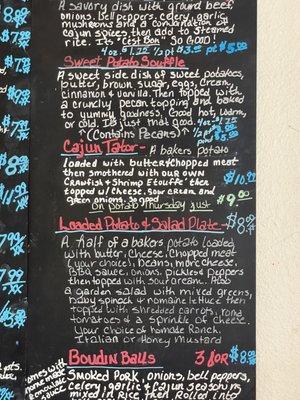 A savory dish with ground beef,
onions, bell peppers, celery, garlic,
mushrooms and a combination of
cajun spices then add to steamed
rice. It's "C'est Bon" So GOOD!
4oz $1.22 1/2 pt $3.00 pt $5.00
Sweet Potato Souffle
A sweet side dish of sweet potatoes,
butter, brown sugar, eggs, cream,
cinnamon & vanilla. Then topped with
a crunchy pecan topping and baked
to yummy goodness. Good hot, warm,
or cold. It's just that good. 4oz
(Contains Pecans) 1/2 pt
pt
Cajun Tator - A bakers potato
loaded with butter & chopped meat
then smothered with our own
Crawfish & Shrimp Etouffe' then
topped w/ cheese, sour cream and
green onions. So good $10.99
On potato Thursday just $9.00
Loaded Potato & Salad Plate - $8
A half of a bakers potato loaded
with butter, cheese, chopped meat
(your choice), beans, more cheese,
BBQ sauce, onions, pickles & peppers
then topped with sour cream. Also
a garden salad with mixed greens,
baby spinach & romaine lettuce then
topped with shredded carrots,
tomatoes & a sprinkle of cheese.
Your choice of homade Ranch,
Italian or Honey Mustard
Boudin Balls 3 for $8
Smoked Pork, onions, bell peppers,
celery, garlic & Cajun seasoning
mixed in Rice then Rolled into